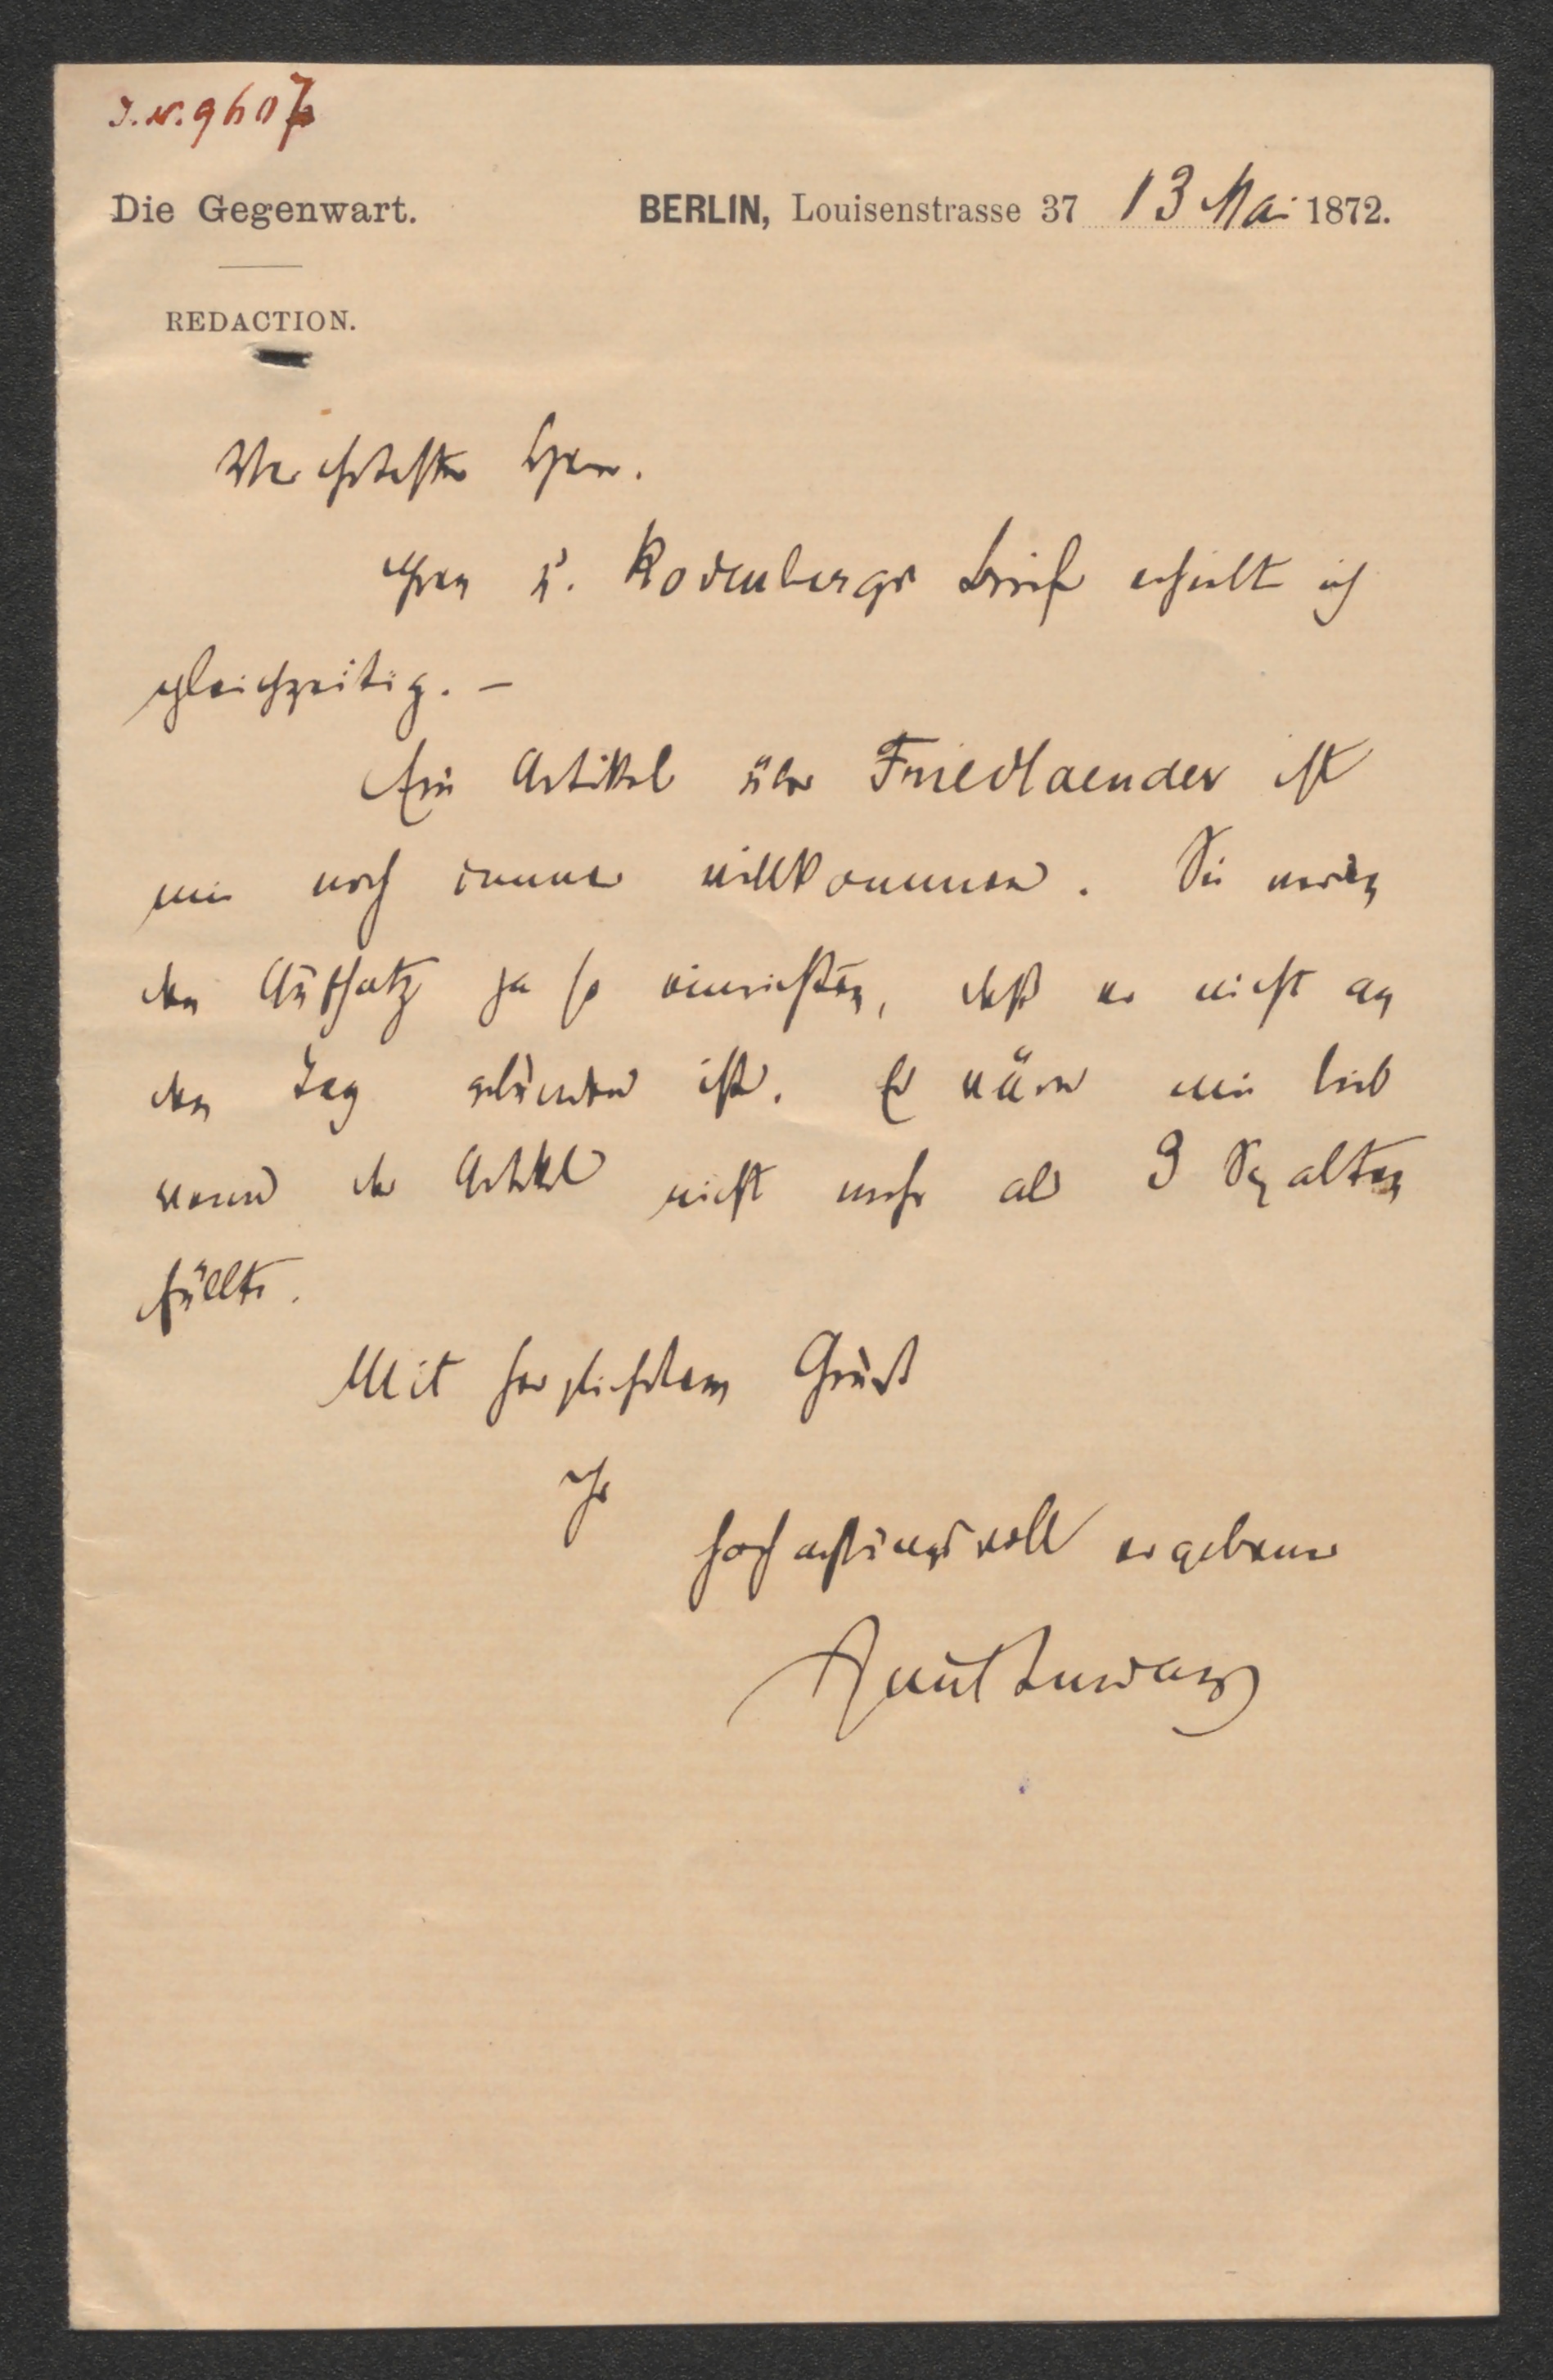 J.N. 9607
Die Gegenwart. BERLIN, Louisenstrasse 37 13 Mai 1872.
REDACTION.
Verehrtester Herr.
Ihren u. Rodenbergs Brief erhielt ich
gleichzeitig. –
Ein Artikel über Friedlaender ist
mir noch immer willkommen. Sie werden
den Aufsatz ja so einrichten, daß er nicht an
den Tag gebunden ist. Es wäre mir lieb
wenn der Artikel nicht mehr als 9 Spalten
füllte.
Mit herzlichstem Gruß
Ihr
hochachtungsvoll ergebener
Paul Lindau